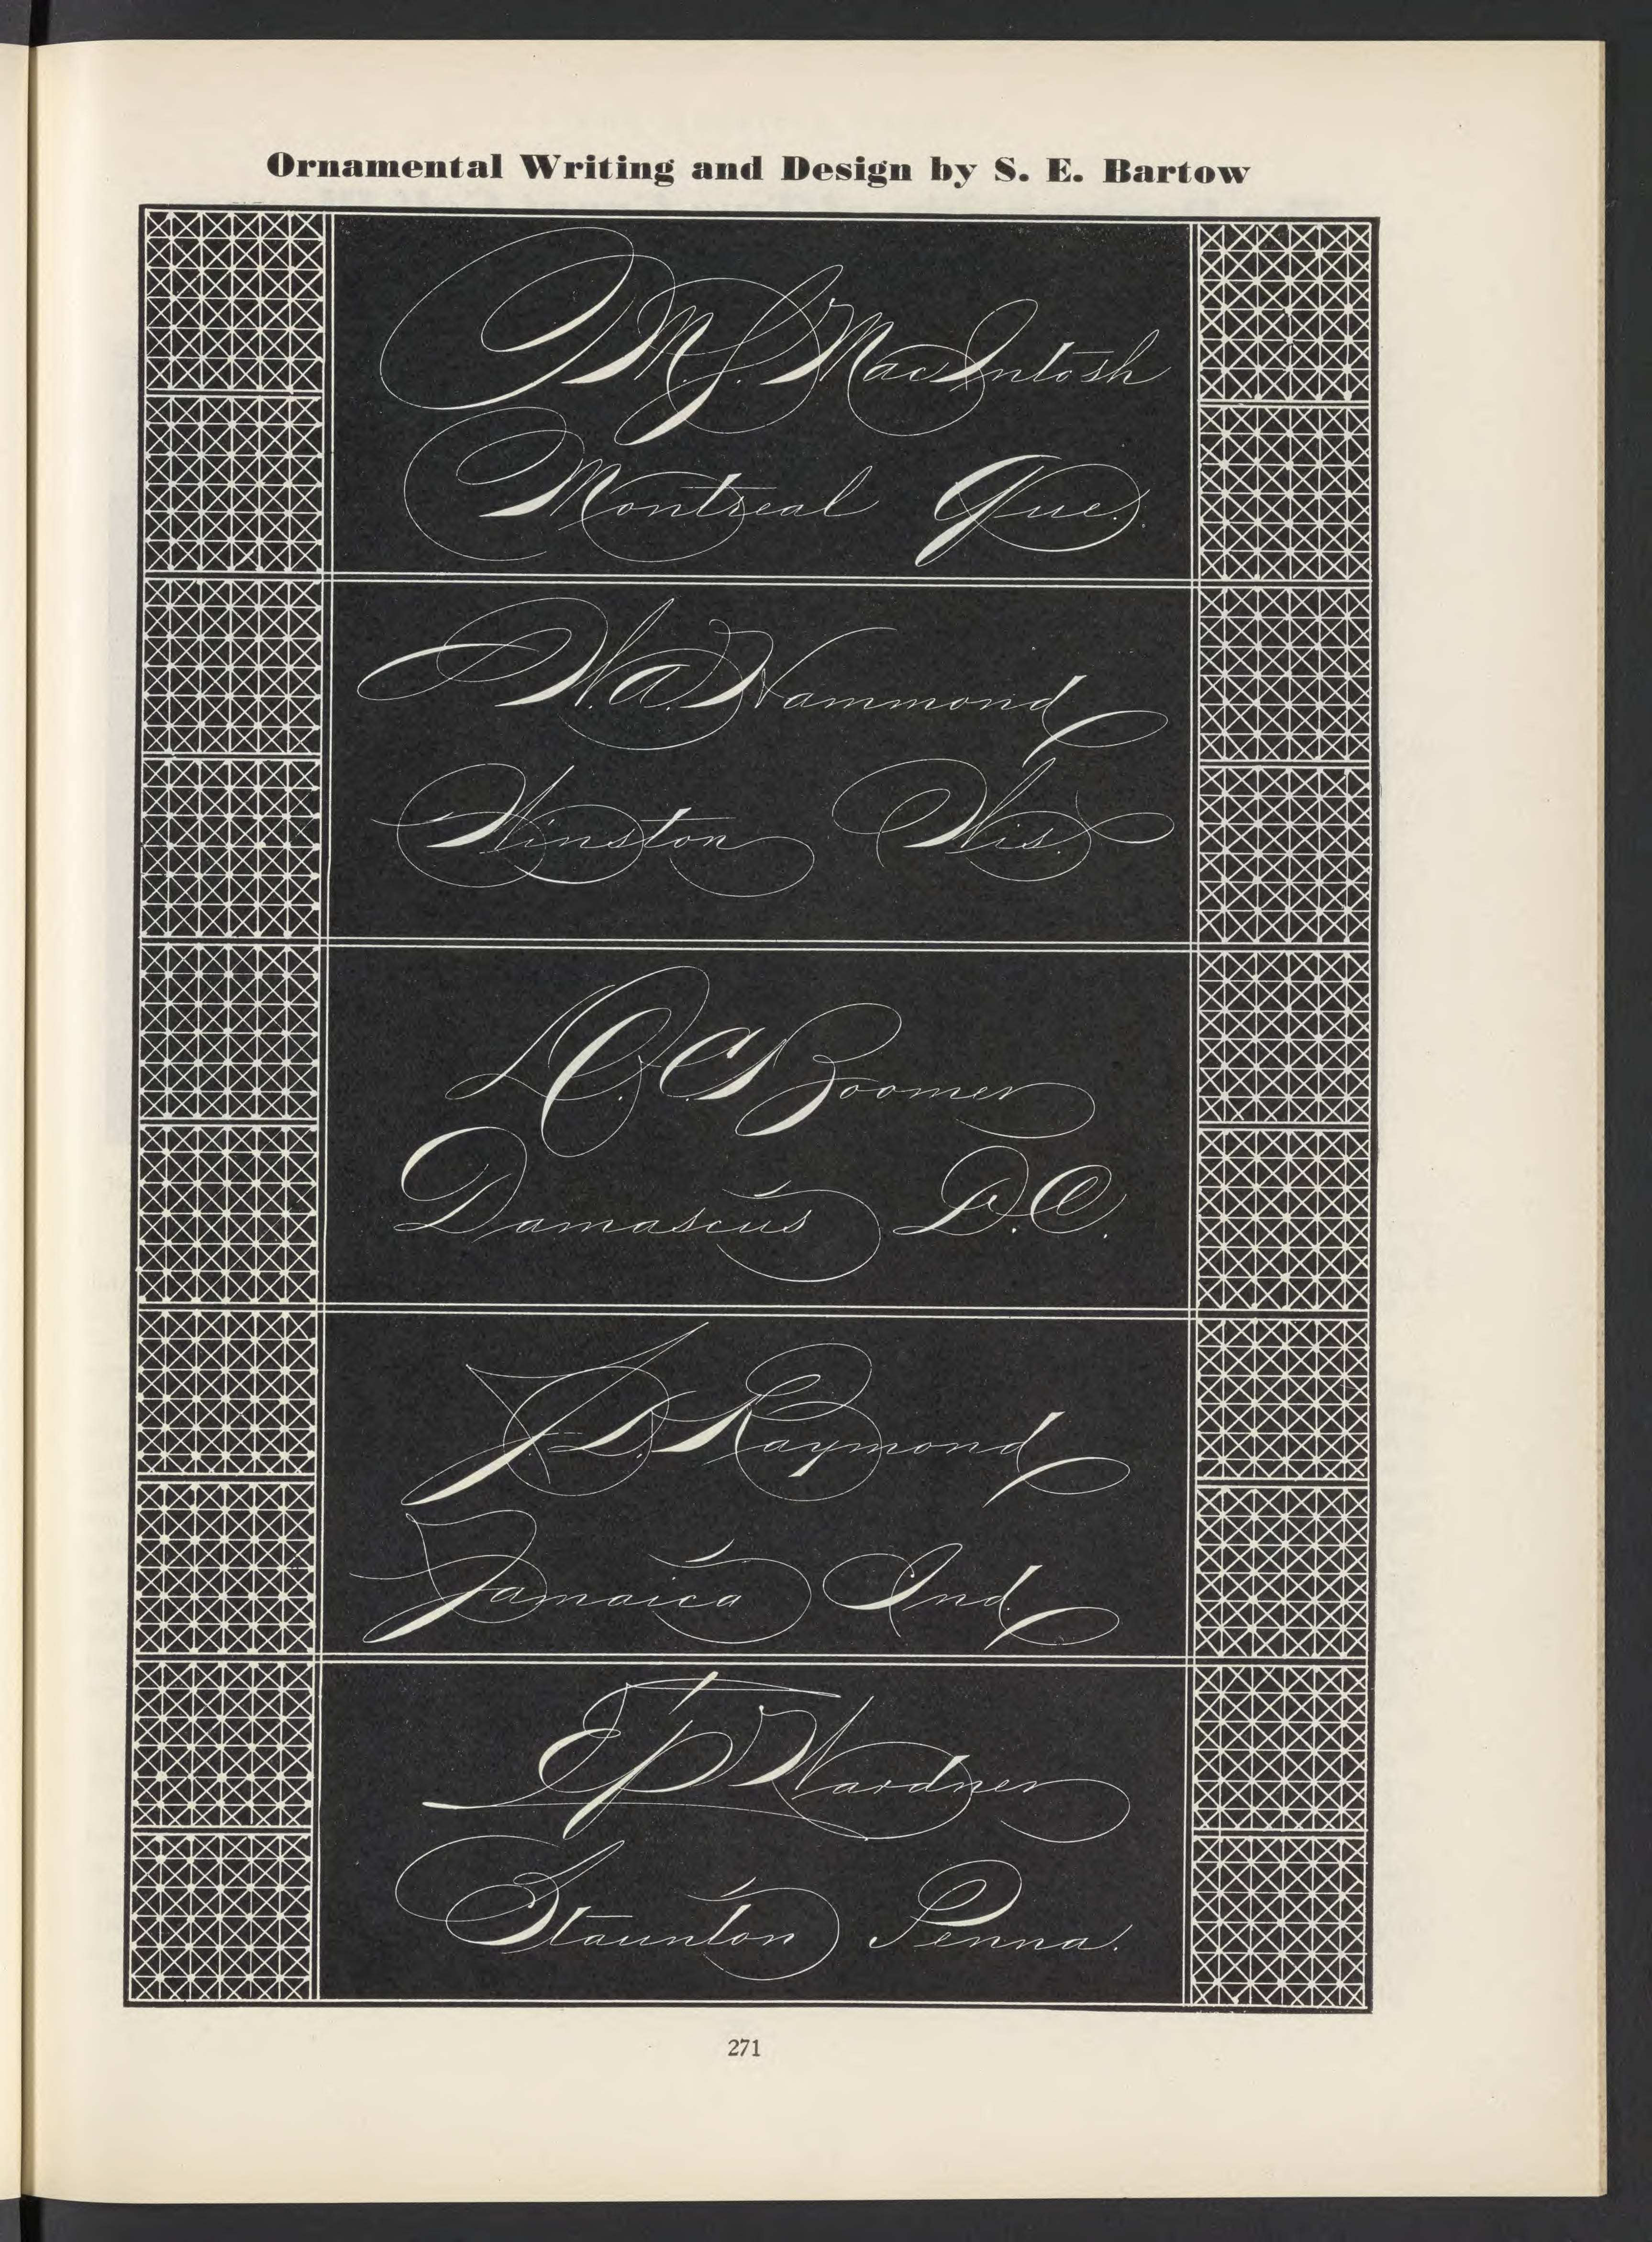 Ornamental Writing and Design by S. E. Bartow
M. J. MacIntosh
Montreal Que.
W. A. Hammond
Winston Wis.
C. Boomer
Damascus D.C.
Raymond
Jamaica Ind.
E P Wardner
Staunton Penna.
271